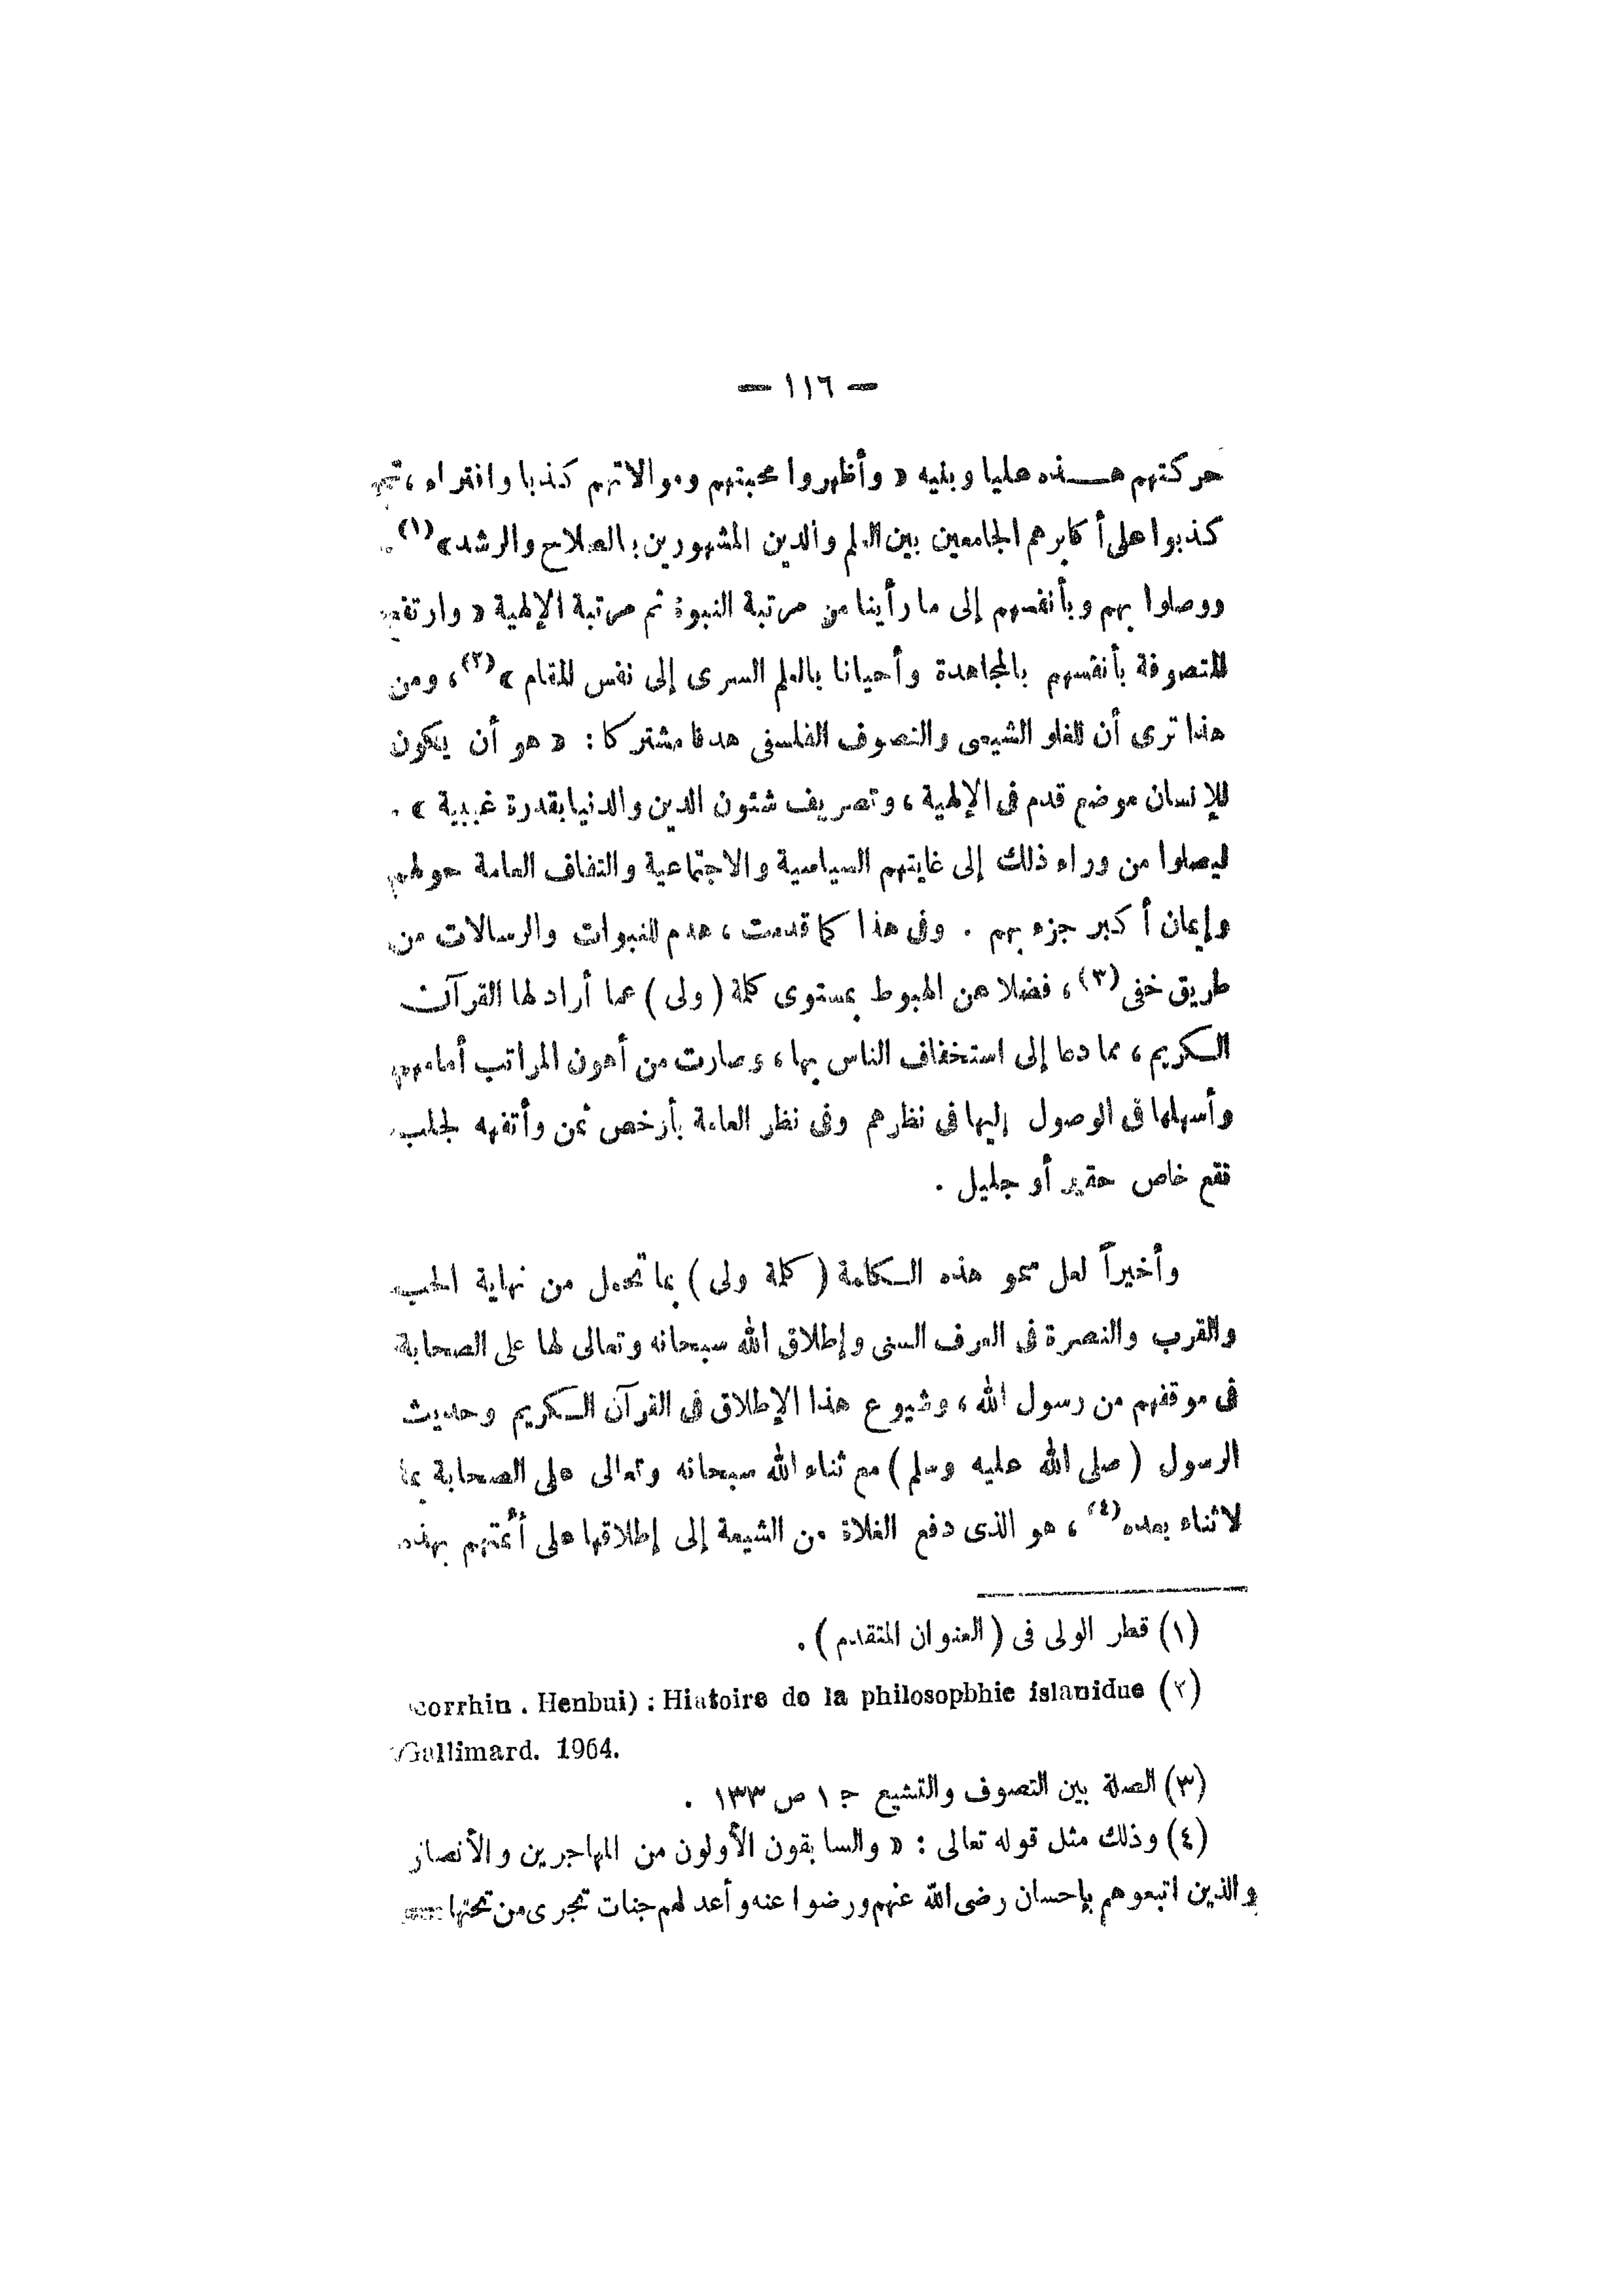 — ١١٦ —
حركتهم هـــذه عليا وبنيه « وأظهروا محبتهم وموالاتهم كذبا وافتراء ، ثم
كذبوا على أكابرهم الجامعين بين العلم والدين المشهورين بالصلاح والرشد »(١) .
ووصلوا بهم وبأنفسهم إلى ما رأينا من مرتبة النبوة ثم مرتبة الإلهية « وارتفع
المتصوفة بأنفسهم بالمجاهدة وأحيانا بالعلم السرى إلى نفس المقام »(٢) ، ومن
هذا ترى أن للغلو الشيعى والتصوف الفلسفى هدفا مشتركا : « هو أن يكون
للإنسان موضع قدم فى الإلهية ، وتصريف شئون الدين والدنيا بقدرة غيبية » .
ليصلوا من وراء ذلك إلى غايتهم السياسية والاجتماعية والتفاف العامة حولهم
وإيمان أكبر جزء بهم . وفى هذا كما قدمت ، هدم للنبوات والرسالات من
طريق خفى (٣) ، فضلا عن الهبوط بمستوى كلمة ( ولى ) عما أراد لها القرآن
الـكريم ، مما دعا إلى استخفاف الناس بها ، وصارت من أهون المراتب أمامهم
وأسهلها فى الوصول إليها فى نظرهم وفى نظر العامة بأرخص ثمن وأتفهه لجلب
نفع خاص حقير أو جليل .
وأخيراً لعل سمو هذه الـكلمة ( كلمة ولى ) بما تحمل من نهاية الحب
والقرب والنصرة فى العرف السنى وإطلاق الله سبحانه وتعالى لها على الصحابة
فى موقفهم من رسول الله ، وشيوع هذا الإطلاق فى القرآن الـكريم وحديث
الرسول ( صلى الله عليه وسلم ) مع ثناء الله سبحانه وتعالى على الصحابة بما
لا ثناء بعده(٤) ، هو الذى دفع الغلاة من الشيعة إلى إطلاقها على أئمتهم بهذه
(١) قطر الولى فى ( العنوان المتقدم ) .
(٢) corrhin . Henbui) : Hiatoire de la philosopbhie islanidue
Gallimard. 1964.
(٣) الصلة بين التصوف والتشيع ج ١ ص ١٣٣ .
(٤) وذلك مثل قوله تعالى : « والسابقون الأولون من المهاجرين والأنصار
والذين اتبعوهم بإحسان رضى الله عنهم ورضوا عنه وأعد لهم جنات تجرى من تحتها